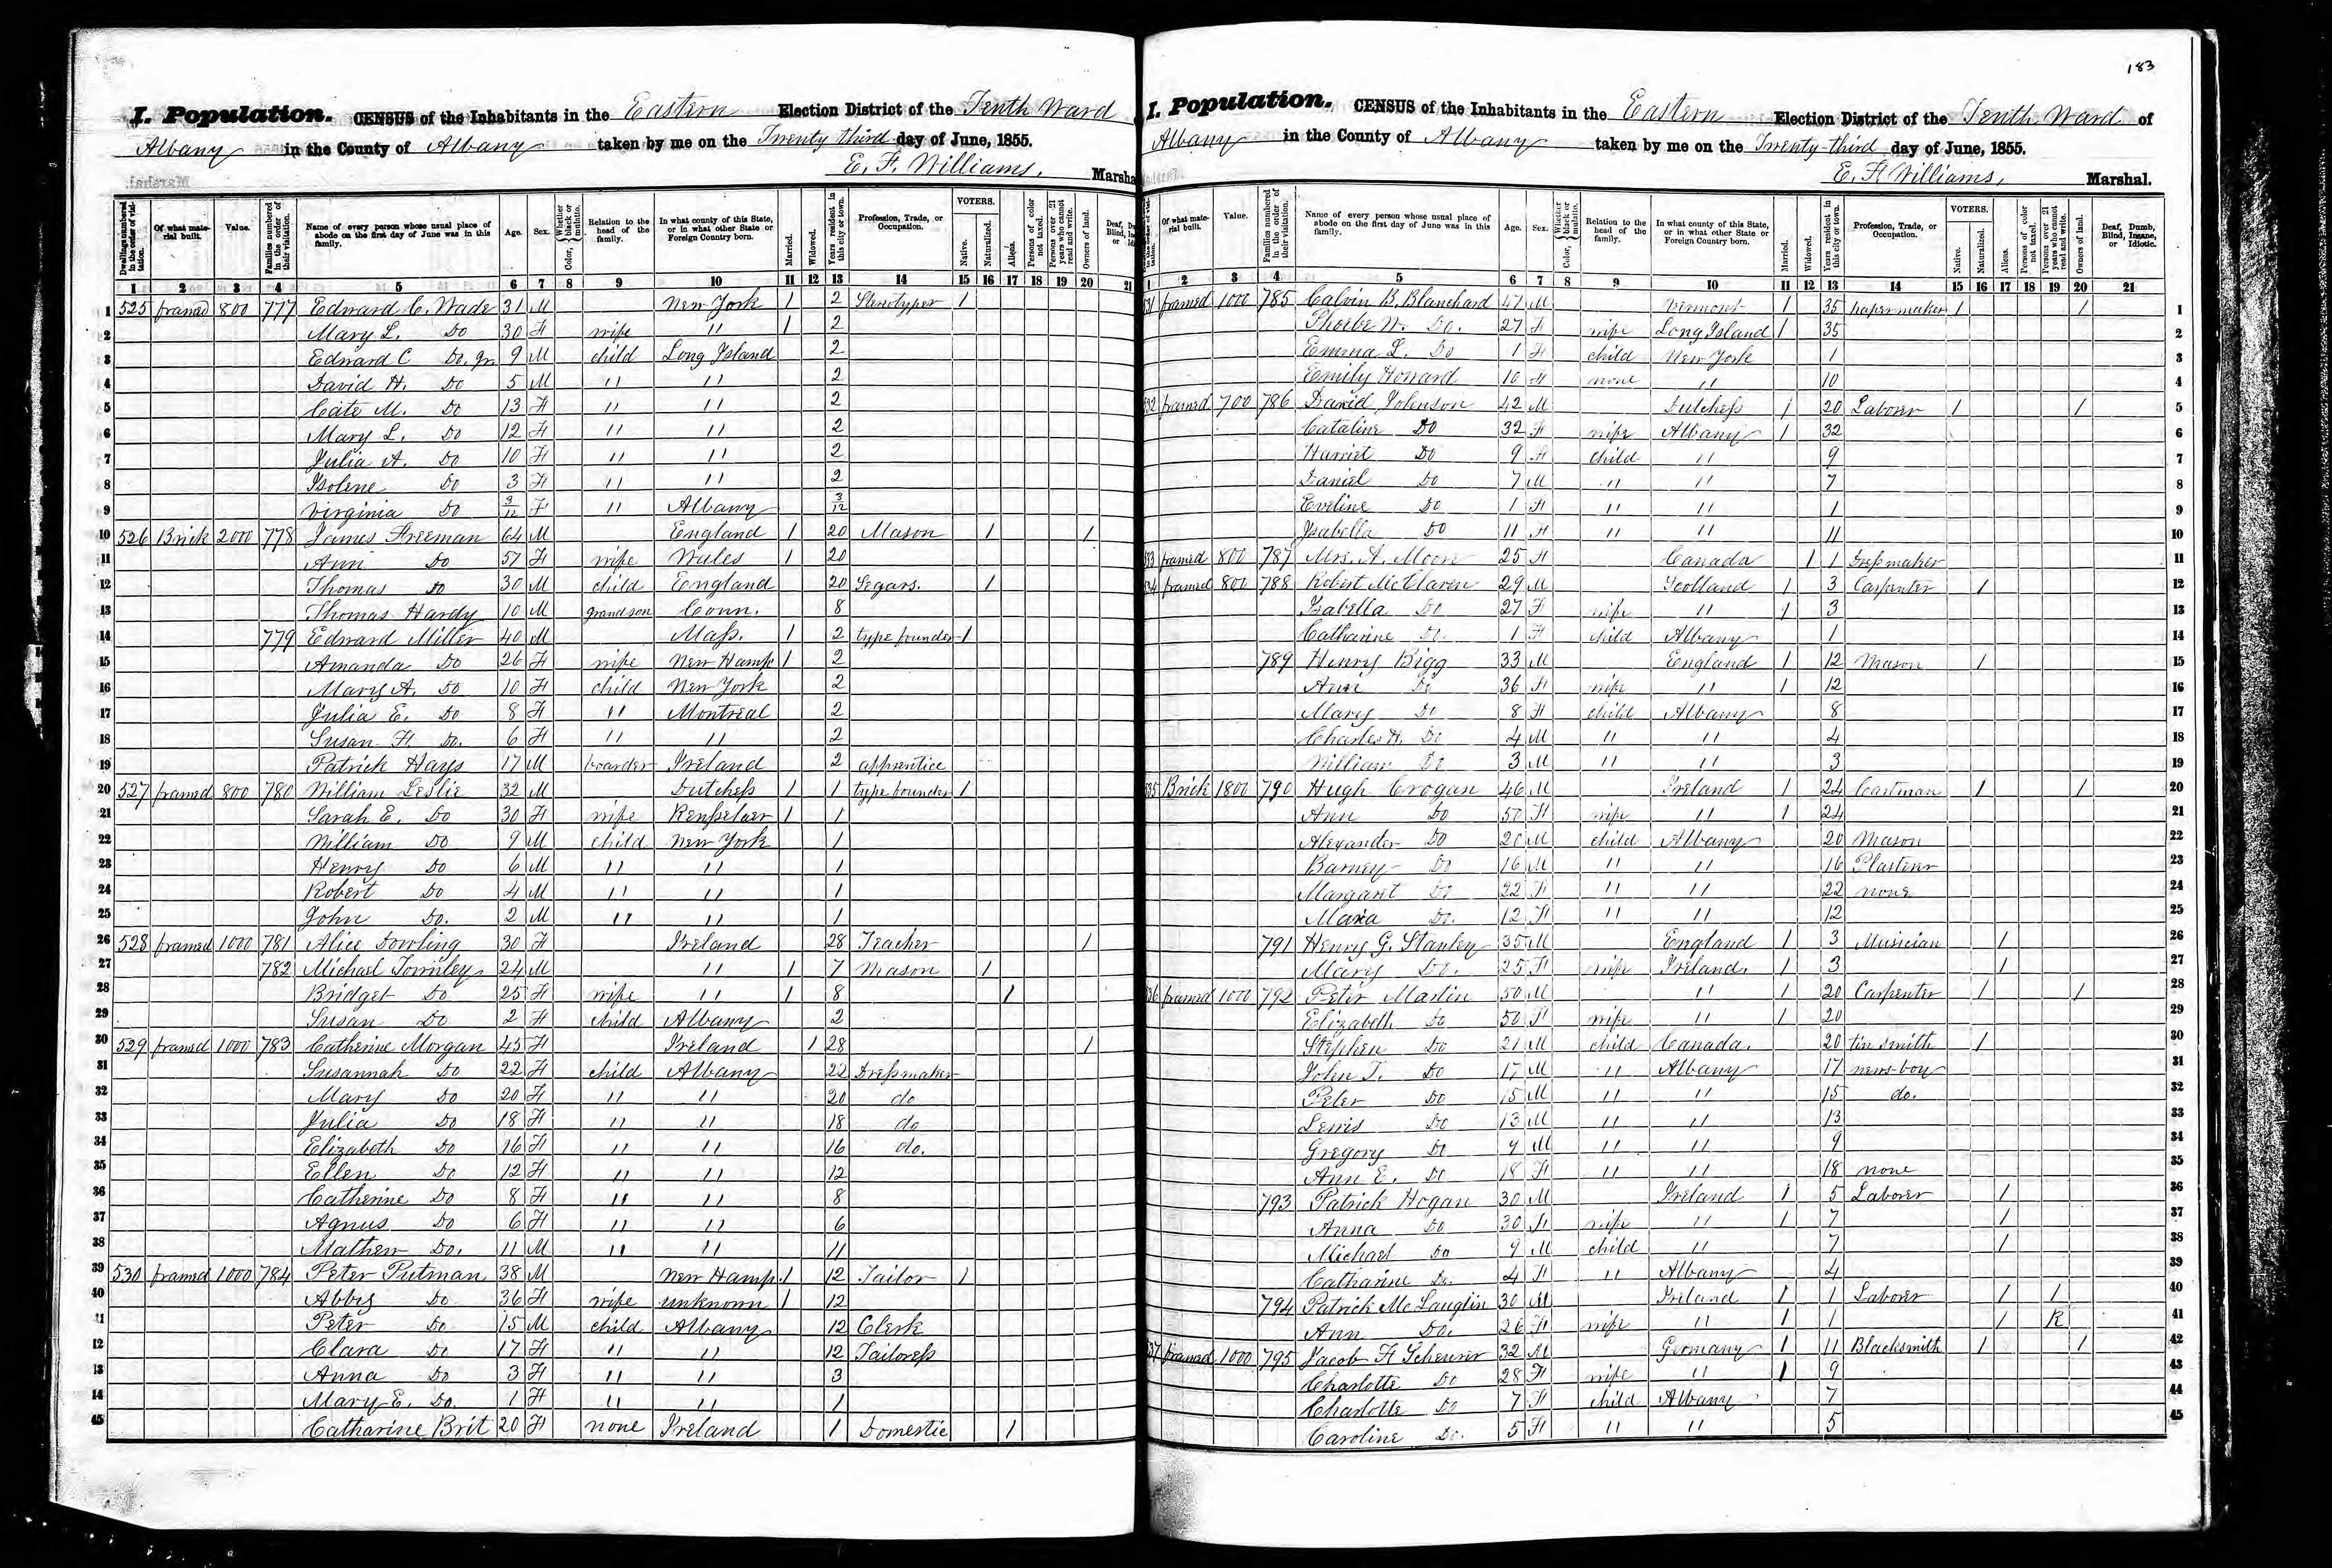 183
I. Population. CENSUS of the Inhabitants in the Eastern Election District of the Tenth Ward
Albany in the County of Albany taken by me on the Twenty third day of June, 1855.
E. F. Williams, Marsha
Dwellings numbered in the order of visitation. Of what material built. Value. Families numbered in the order of their visitation. Name of every person whose usual place of abode on the first day of June was in this family. Age. Sex. Color, Whether black or mulatto. Relation to the head of the family. In what county of this State, or in what other State or Foreign Country born. Married. Widowed. Years resident in this city or town. Profession, Trade, or Occupation. VOTERS. Native. Naturalized. Aliens. Persons of color not taxed. Persons over 21 years who cannot read and write. Owners of land.
1 2 3 4 5 6 7 8 9 10 11 12 13 14 15 16 17 18 19 20 21
1 525 framed 800 777 Edward C. Wade 31 M New York 1 2 Sterotyper 1
2 Mary L. Do 30 F wife " 1 2
3 Edward C Do. Jr. 9 M child Long Island 2
4 David H. Do 5 M " " 2
5 Cate M. Do 13 F " " 2
6 Mary L. Do 12 F " " 2
7 Julia A. Do 10 F " " 2
8 Isolene Do 3 F " " 2
9 Virginia Do 3/12 F " Albany 3/12
10 526 Brick 2000 778 James Freeman 64 M England 1 20 Mason 1 1
11 Ann Do 57 F wife Wales 1 20
12 Thomas Do 30 M child England 20 Segars. 1
13 Thomas Hardy 10 M grandson Conn. 8
14 779 Edward Miller 40 M Mass. 1 2 type founder 1
15 Amanda Do 26 F wife New Hamp 1 2
16 Mary A. Do 10 F child New York 2
17 Julia E. Do 8 F " Montreal 2
18 Susan F. Do. 6 F " " 2
19 Patrick Hays 17 M boarder Ireland 2 apprentice
20 527 framed 800 780 William Leslie 32 M Dutchess 1 1 type founder 1
21 Sarah E. Do 30 F wife Rensselaer 1 1
22 William Do 9 M child New York 1
23 Henry Do 6 M " " 1
24 Robert Do 4 M " " 1
25 John Do. 2 M " " 1
26 528 framed 1000 781 Alice Dowling 30 F Ireland 28 Teacher 1
27 782 Michael Townley 24 M " 1 7 Mason 1
28 Bridget Do 25 F wife " 1 8 1
29 Susan Do 2 F child Albany 2
30 529 framed 1000 783 Catherine Morgan 45 F Ireland 1 28 1
31 Susannah Do 22 F child Albany 22 Dressmaker
32 Mary Do 20 F " " 20 do
33 Julia Do 18 F " " 18 do
34 Elizabeth Do 16 F " " 16 do.
35 Ellen Do 12 F " " 12
36 Catherine Do 8 F " " 8
37 Agnus Do 6 F " " 6
38 Mathew Do. 11 M " " 11
39 530 framed 1000 784 Peter Putman 38 M New Hamp. 1 12 Tailor 1
40 Abby Do 36 F wife unknown 1 12
41 Peter Do 15 M child Albany 12 Clerk
12 Clara Do 17 F " " 12 Tailoress
13 Anna Do 3 F " " 3
14 Mary E. Do. 1 F " " 1
45 Catharine Brit 20 F none Ireland 1 Domestic 1
I. Population. CENSUS of the Inhabitants in the Eastern Election District of the Tenth Ward of
Albany in the County of Albany taken by me on the Twenty-third day of June, 1855.
E. F. Williams, Marshal.
Of what material built. Value. Families numbered in the order of their visitation. Name of every person whose usual place of abode on the first day of June was in this family. Age. Sex. Color, Whether black or mulatto. Relation to the head of the family. In what county of this State, or in what other State or Foreign Country born. Married. Widowed. Years resident in this city or town. Profession, Trade, or Occupation. VOTERS. Native. Naturalized. Aliens. Persons of color not taxed. Persons over 21 years who cannot read and write. Owners of land. Deaf, Dumb, Blind, Insane, or Idiotic.
1 2 3 4 5 6 7 8 9 10 11 12 13 14 15 16 17 18 19 20 21
31 framed 1000 785 Calvin B. Blanchard 47 M Vermont 1 35 paper maker 1 1 1
Phoebe W. Do. 27 F wife Long Island 1 35 2
Emma L. Do 1 F child New York 1 3
Emily Howard 10 F none " 10 4
532 framed 700 786 David Johnson 42 M Dutchess 1 20 Laborer 1 1 5
Cataline Do 32 F wife Albany 1 32 6
Harriet Do 9 F child " 9 7
Daniel Do 7 M " " 7 8
Eveline Do 1 F " " 1 9
Isabella Do 11 F " " 11 10
533 framed 800 787 Mrs. A. Moore 25 F Canada 1 1 Dressmaker 11
34 framed 800 788 Robert McClaren 29 M Scotland 1 3 Carpenter 1 12
Isabella Do 27 F wife " 1 3 13
Catharine Do. 1 F child Albany 1 14
789 Henry Bigg 33 M England 1 12 Mason 1 15
Ann Do 36 F wife " 1 12 16
Mary Do 8 F child Albany 8 17
Charles H. Do 4 M " " 4 18
William Do 3 M " " 3 19
535 Brick 1800 790 Hugh Crogan 46 M Ireland 1 24 Cartman 1 1 20
Ann Do 50 F wife " 1 24 21
Alexander Do 20 M child Albany 20 Mason 22
Barney Do 16 M " " 16 Plasterer 23
Margaret Do 22 F " " 22 none 24
Maria Do. 12 F " " 12 25
791 Henry G. Stanley 35 M England 1 3 Musician 1 26
Mary Do. 25 F wife Ireland. 1 3 1 27
536 framed 1000 792 Peter Martin 50 M " 1 20 Carpenter 1 1 28
Elizabeth Do 50 F wife " 1 20 29
Stephen Do 21 M child Canada. 20 tin smith 1 30
John T. Do 17 M " Albany 17 news-boy 31
Peter Do 15 M " " 15 do. 32
Lewis Do 13 M " " 13 33
Gregory Do 9 M " " 9 34
Ann E. Do 18 F " " 18 none 35
793 Patrick Hogan 30 M Ireland 1 5 Laborer 1 36
Anna Do 30 F wife " 1 7 1 37
Michael Do 9 M child " 7 1 38
Catharine Do. 4 F " Albany 4 39
794 Patrick McLauglin 30 M Ireland 1 1 Laborer 1 1 40
Ann Do. 26 F wife " 1 1 1 R 41
37 framed 1000 795 Jacob F Scheurer 32 M Germany 1 11 Blacksmith 1 1 42
Charlotte Do 28 F wife " 1 9 43
Charlotte Do 7 F child Albany 7 44
Caroline Do. 5 F " " 5 45